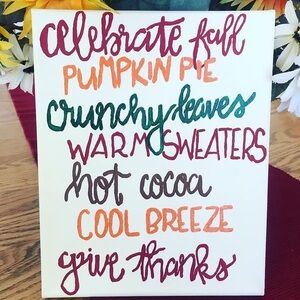 celebrate fall
PUMPKIN PIE
crunchy leaves
WARM SWEATERS
hot cocoa
COOL BREEZE
give thanks